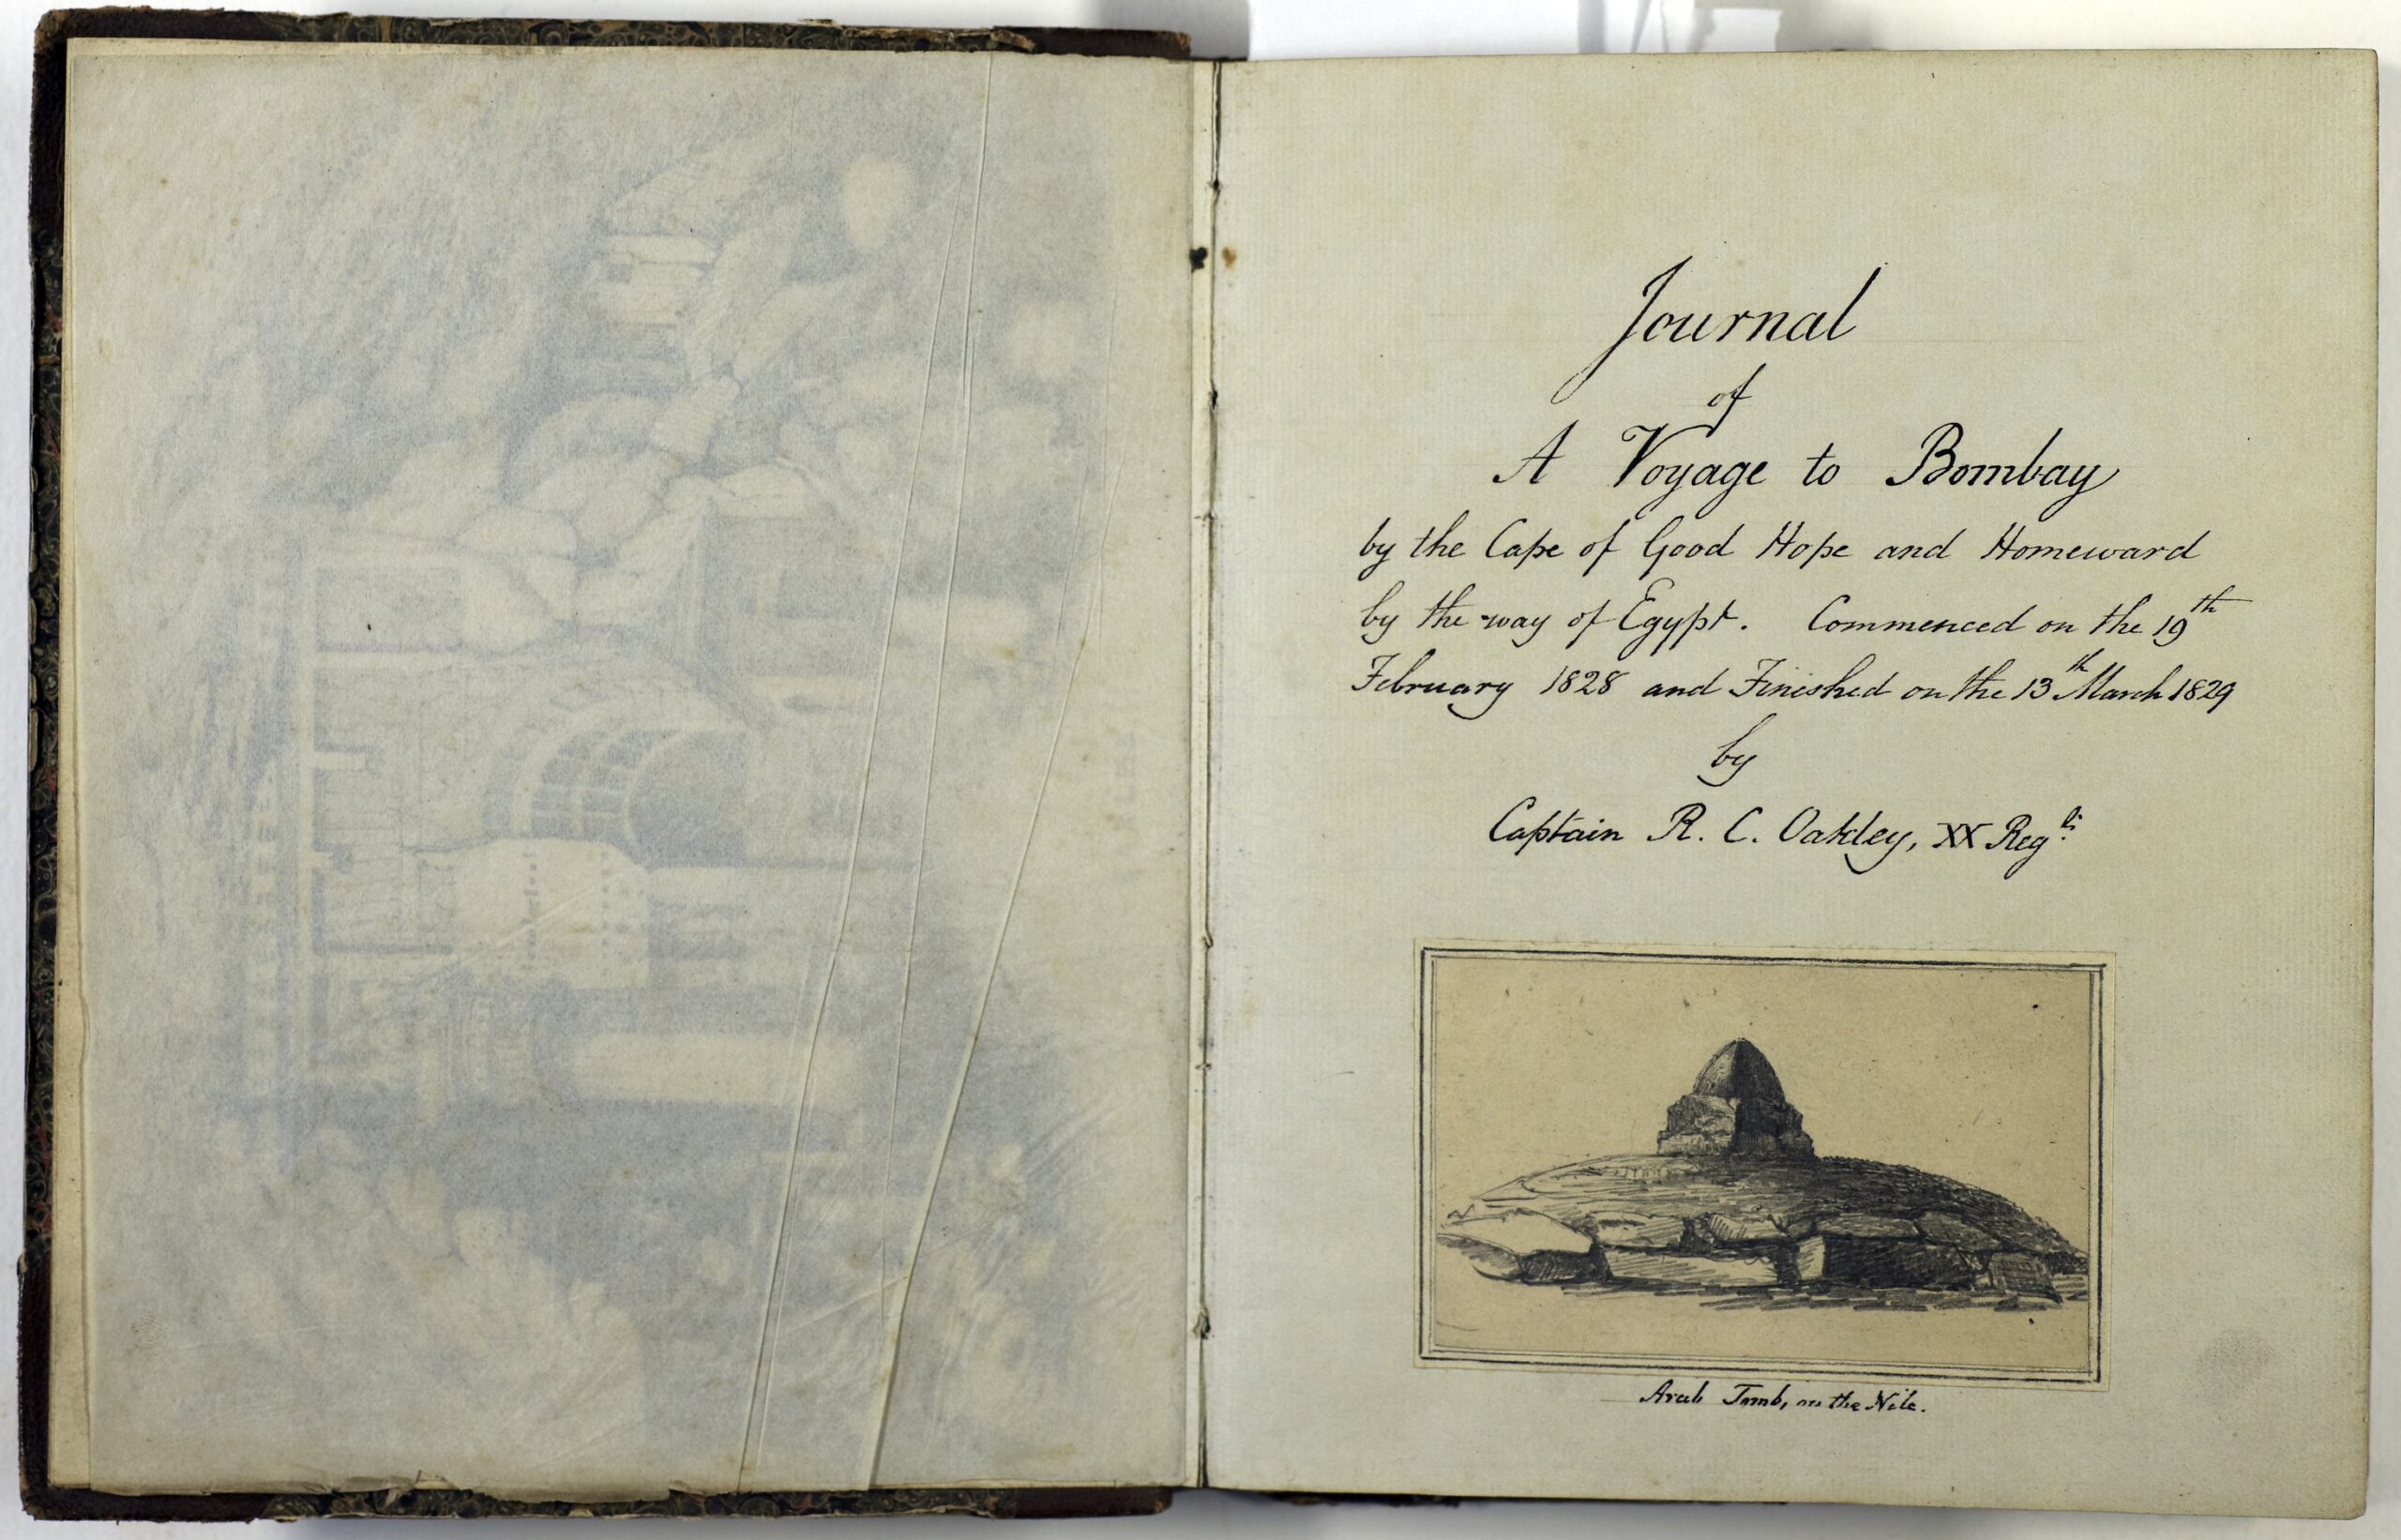 Journal
of
A Voyage to Bombay
by the Cape of Good Hope and Homeward
by the way of Egypt. Commenced on the 19th
February 1828 and Finished on the 13th March 1829
by
Captain R. C. Oakley, XX Regt.
Arab Tomb, on the Nile.